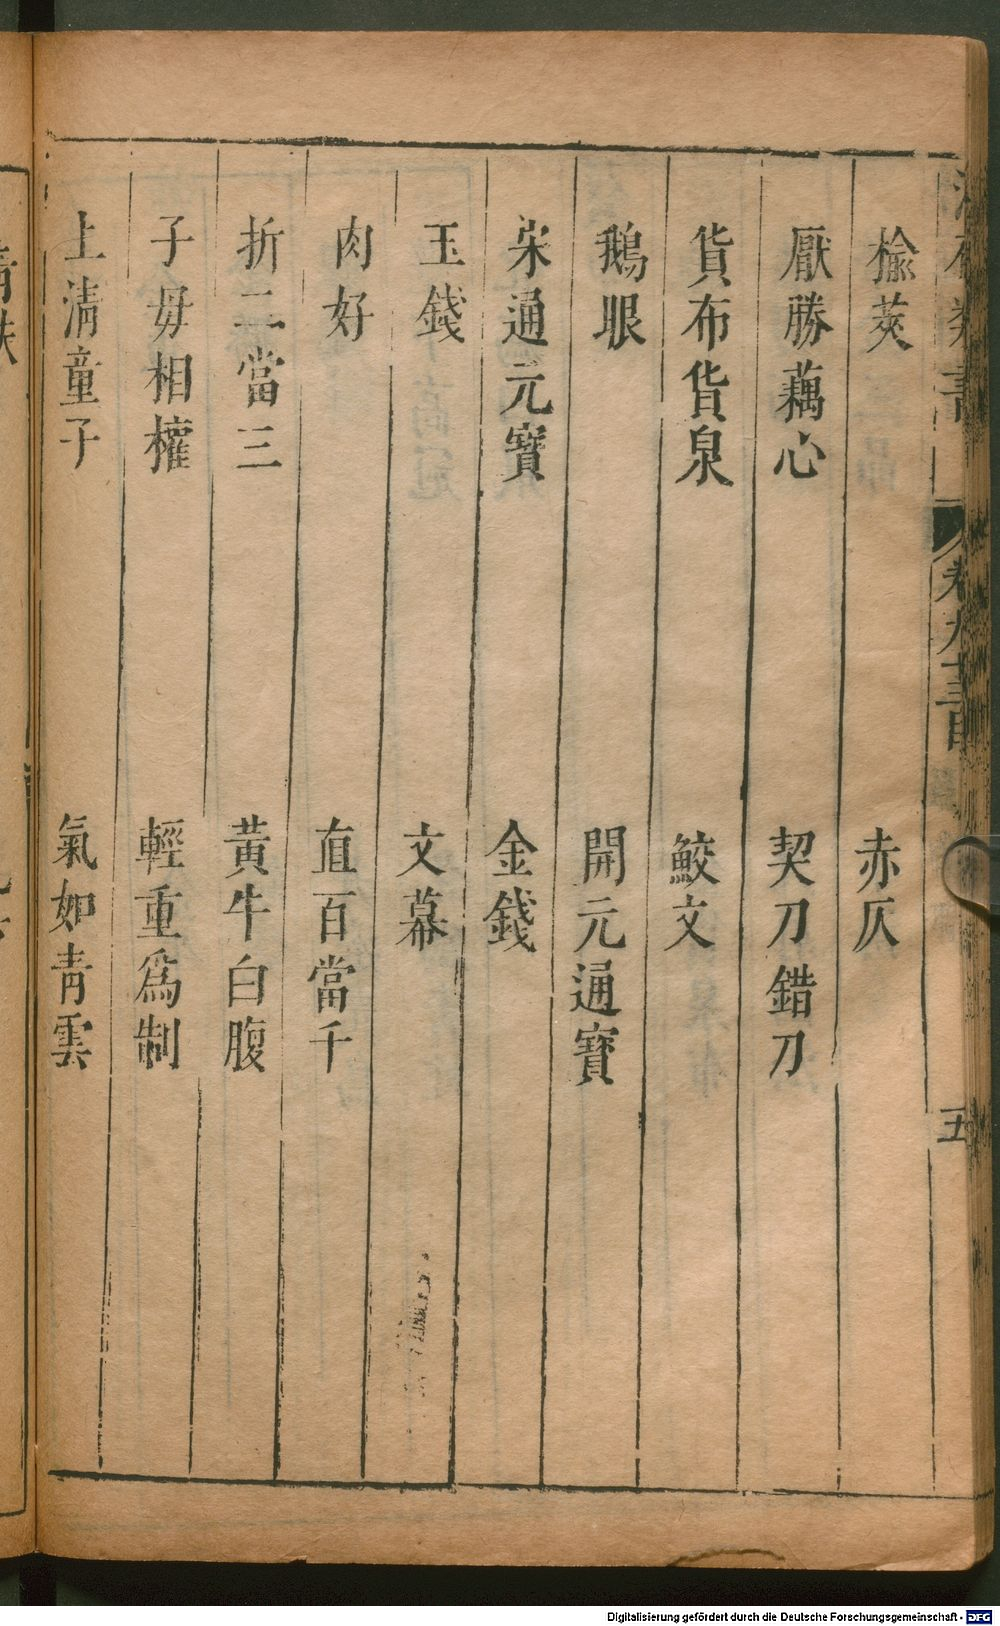 榆莢 赤仄
厭勝藕心 契刀錯刀
貨布貨泉 鮫文
鵝眼 開元通寶
宋通元寶 金錢
玉錢 文幕
肉好 直百當千
折二當三 黃牛白腹
子毋相權 輕重爲制
上清童子 氣如青雲
五
Digitalisierung gefördert durch die Deutsche Forschungsgemeinschaft - DFG